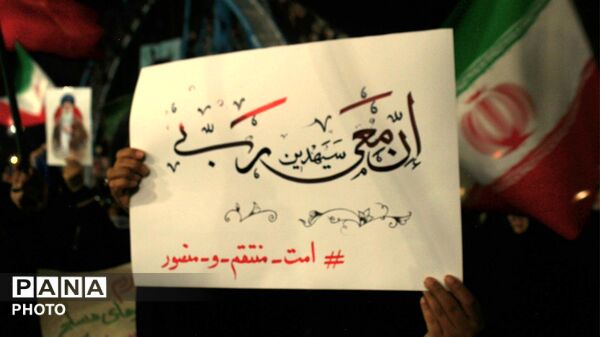 إنّ مَعی رَبّی سیهدین
# امت - منتقم - و - منصور
PANA
PHOTO